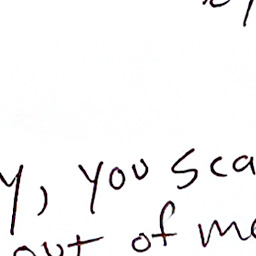 y, you sca
out of me